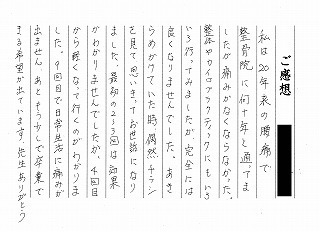 ご感想
私は20年来の腰痛で
整骨院に何十年と通ってま
したが痛みがなくならなかった。
整体やカイロプラクティックにもいろ
いろ行ってみましたが、完全には
良くなりませんでした。あき
らめかけていた時、偶然チラシ
を見て思いきってお世話になり
ました。最初の2、3回は効果
がわかりませんでしたが、4回目
から軽くなって行くのがわかりま
した。9回目で日常生活に痛みが
出ません。あともう少しで卒業で
きる希望が出ています。先生ありがとう